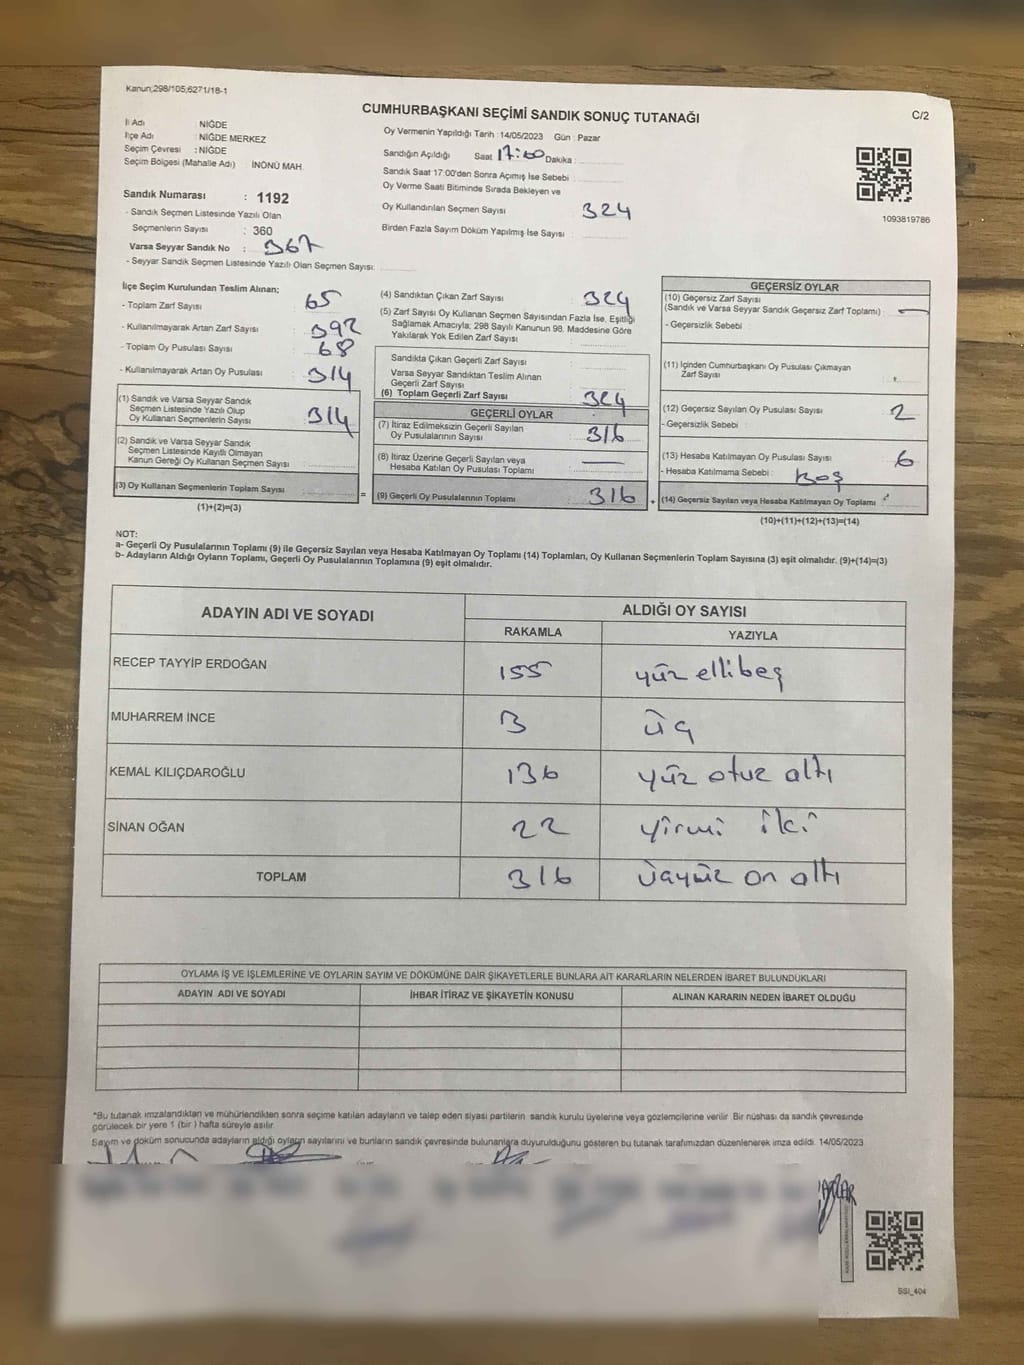 Kanun;298/105,6271/18-1
CUMHURBAŞKANI SEÇİMİ SANDIK SONUÇ TUTANAĞI
C/2
İl Adı : NİĞDE
İlçe Adı : NİĞDE MERKEZ
Seçim Çevresi : NİĞDE
Seçim Bölgesi (Mahalle Adı) : İNÖNÜ MAH.
Oy Vermenin Yapıldığı Tarih :14/05/2023 Gün : Pazar
Sandığın Açıldığı Saat 17:00 Dakika :
Sandık Saat 17:00'den Sonra Açımış İse Sebebi :
Oy Verme Saati Bitiminde Sırada Bekleyen ve
Oy Kullandırılan Seçmen Sayısı 324
Birden Fazla Sayım Döküm Yapılmış İse Sayısı :
1093819786
Sandık Numarası : 1192
- Sandık Seçmen Listesinde Yazılı Olan
Seçmenlerin Sayısı : 360
Varsa Seyyar Sandık No : 367
- Seyyar Sandık Seçmen Listesinde Yazılı Olan Seçmen Sayısı:
İlçe Seçim Kurulundan Teslim Alınan;
- Toplam Zarf Sayısı : 65
- Kullanılmayarak Artan Zarf Sayısı : 392
- Toplam Oy Pusulası Sayısı : 68
- Kullanılmayarak Artan Oy Pusulası : 314
(1) Sandık ve Varsa Seyyar Sandık
Seçmen Listesinde Yazılı Olup
Oy Kullanan Seçmenlerin Sayısı : 314
(2) Sandık ve Varsa Seyyar Sandık
Seçmen Listesinde Kayıtlı Olmayan
Kanun Gereği Oy Kullanan Seçmen Sayısı :
(3) Oy Kullanan Seçmenlerin Toplam Sayısı :
(1)+(2)=(3)
=
(4) Sandıktan Çıkan Zarf Sayısı : 324
(5) Zarf Sayısı Oy Kullanan Seçmen Sayısından Fazla İse, Eşitliği
Sağlamak Amacıyla; 298 Sayılı Kanunun 98. Maddesine Göre
Yakılarak Yok Edilen Zarf Sayısı :
Sandıkta Çıkan Geçerli Zarf Sayısı :
Varsa Seyyar Sandıktan Teslim Alınan
Geçerli Zarf Sayısı :
(6) Toplam Geçerli Zarf Sayısı : 324
GEÇERLİ OYLAR
(7) İtiraz Edilmeksizin Geçerli Sayılan
Oy Pusulalarının Sayısı : 316
(8) İtiraz Üzerine Geçerli Sayılan veya
Hesaba Katılan Oy Pusulası Toplamı : —
(9) Geçerli Oy Pusulalarının Toplamı : 316
+
GEÇERSİZ OYLAR
(10) Geçersiz Zarf Sayısı
(Sandık ve Varsa Seyyar Sandık Geçersiz Zarf Toplamı) : —
- Geçersizlik Sebebi :
(11) İçinden Cumhurbaşkanı Oy Pusulası Çıkmayan
Zarf Sayısı :
(12) Geçersiz Sayılan Oy Pusulası Sayısı : 2
- Geçersizlik Sebebi :
(13) Hesaba Katılmayan Oy Pusulası Sayısı : 6
- Hesaba Katılmama Sebebi : Boş
(14) Geçersiz Sayılan veya Hesaba Katılmayan Oy Toplamı :
(10)+(11)+(12)+(13)=(14)
NOT:
a- Geçerli Oy Pusulalarının Toplamı (9) ile Geçersiz Sayılan veya Hesaba Katılmayan Oy Toplamı (14) Toplamları, Oy Kullanan Seçmenlerin Toplam Sayısına (3) eşit olmalıdır. (9)+(14)=(3)
b- Adayların Aldığı Oyların Toplamı, Geçerli Oy Pusulalarının Toplamına (9) eşit olmalıdır.
ADAYIN ADI VE SOYADI ALDIĞI OY SAYISI
RAKAMLA YAZIYLA
RECEP TAYYİP ERDOĞAN 155 yüz ellibeş
MUHARREM İNCE 3 üç
KEMAL KILIÇDAROĞLU 136 yüz otuz altı
SİNAN OĞAN 22 yirmi iki
TOPLAM 316 üçyüz on altı
OYLAMA İŞ VE İŞLEMLERİNE VE OYLARIN SAYIM VE DÖKÜMÜNE DAİR ŞİKAYETLERLE BUNLARA AİT KARARLARIN NELERDEN İBARET BULUNDUKLARI
ADAYIN ADI VE SOYADI İHBAR İTİRAZ VE ŞİKAYETİN KONUSU ALINAN KARARIN NEDEN İBARET OLDUĞU
*Bu tutanak imzalandıktan ve mühürlendikten sonra seçime katılan adayların ve talep eden siyasi partilerin sandık kurulu üyelerine veya gözlemcilerine verilir. Bir nüshası da sandık çevresinde
görülecek bir yere 1 (bir) hafta süreyle asılır.
Sayım ve döküm sonucunda adayların aldığı oyların sayılarını ve bunların sandık çevresinde bulunanlara duyurulduğunu gösteren bu tutanak tarafımızdan düzenlenerek imza edildi. 14/05/2023
SSI_404